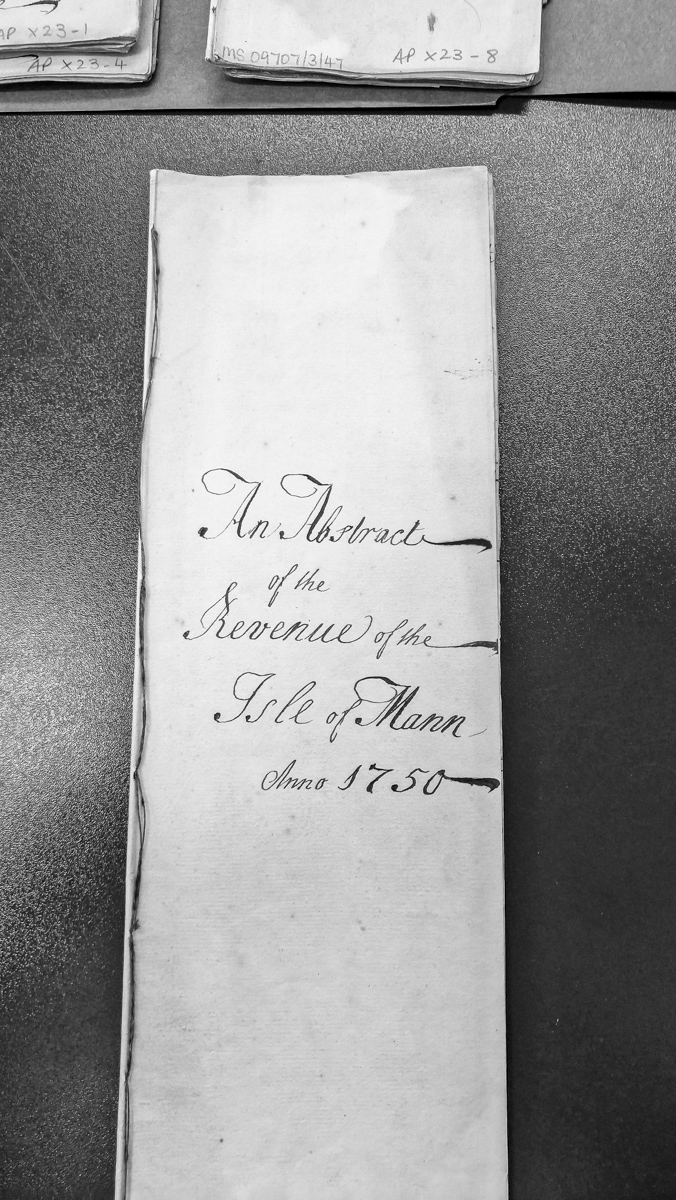 AP X23-1
AP X23-4
MS 09707/3/47 AP X23-8
An Abstract
of the
Revenue of the
Isle of Mann
Anno 1750